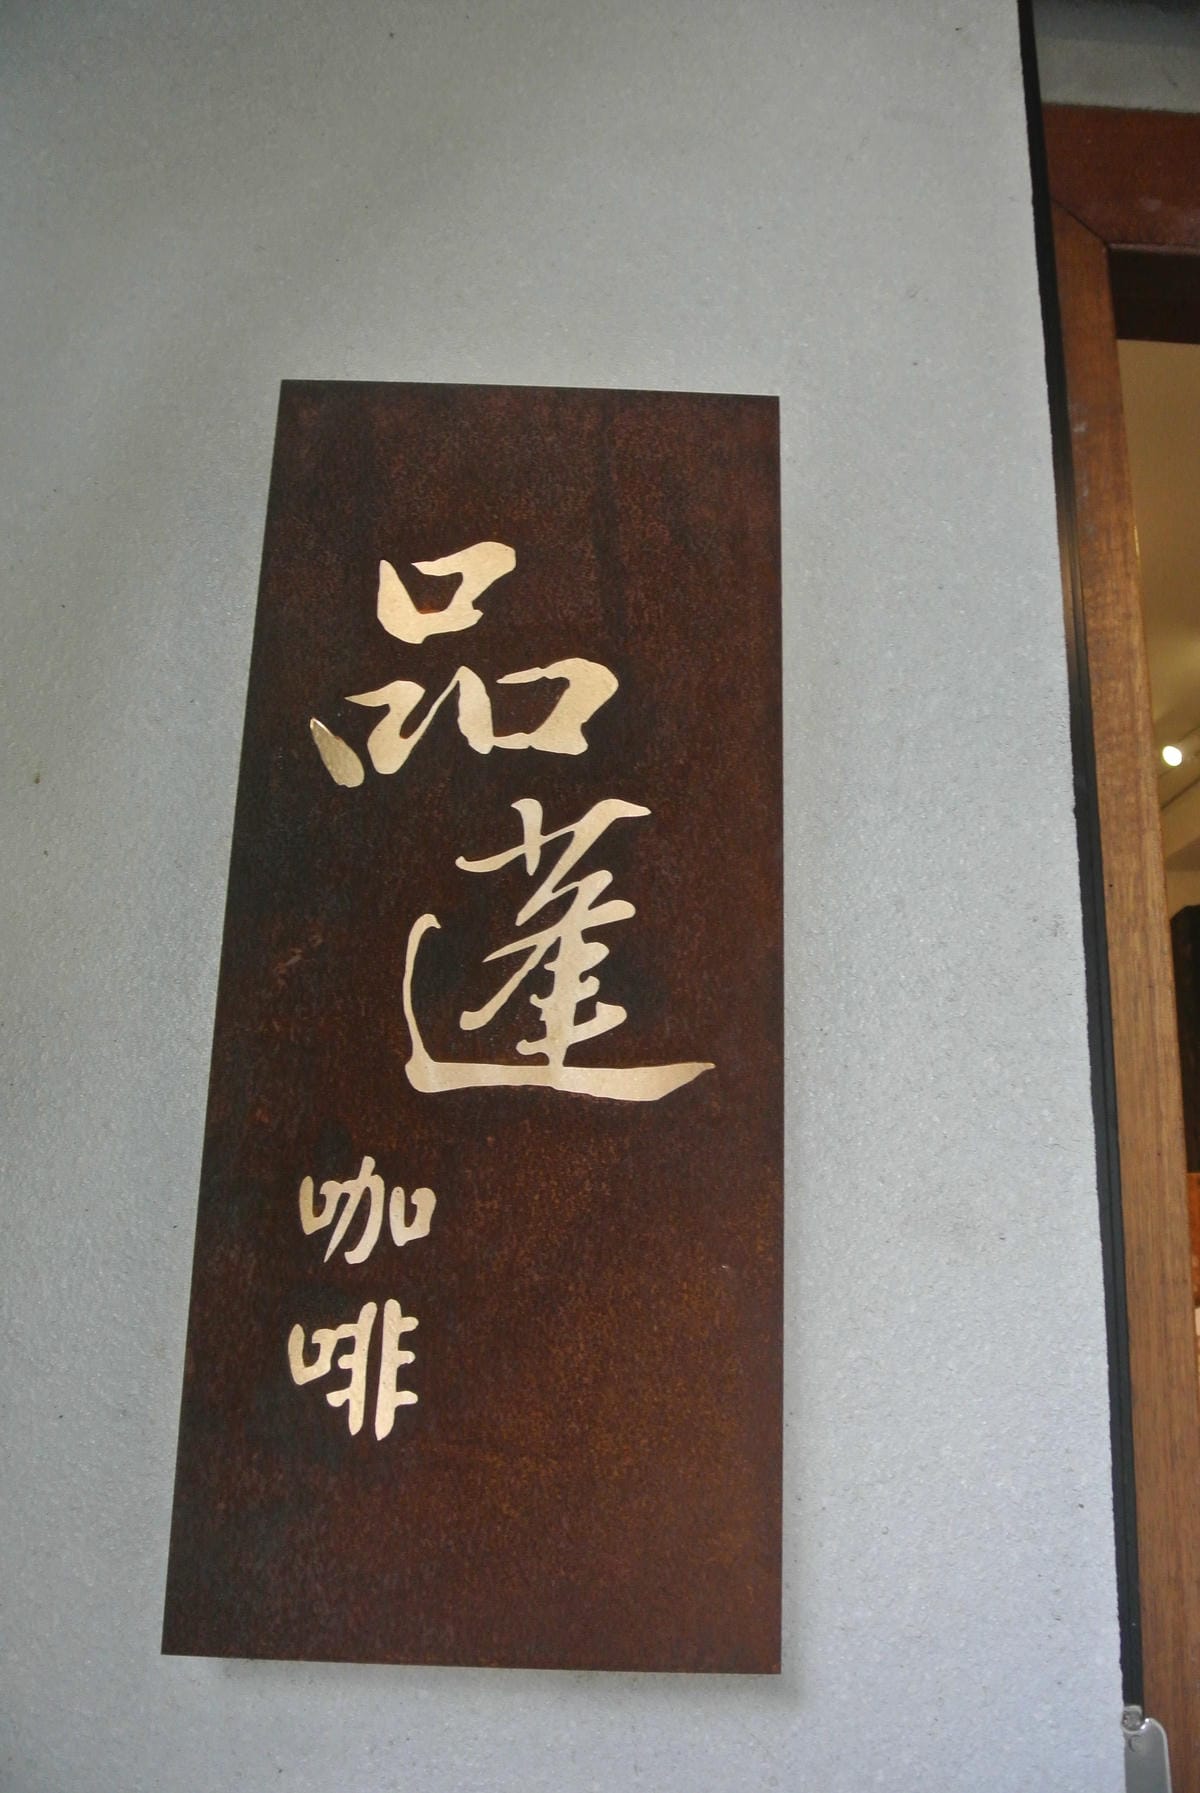 品蓬
咖啡